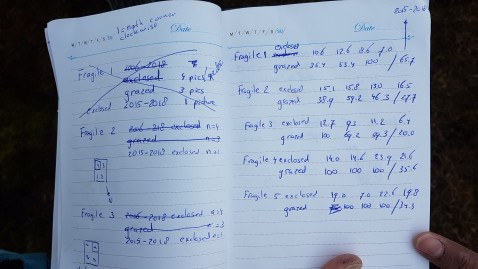 length corner
clockwise
M T W T F S S
Fragile 1 2006-2018
exclosed 4 pics
grazed 3 pics
exclosed 2015-2018 1 picture
Fragile 2 2006-2018 exclosed n=4
grazed n=3
2015-2018 exclosed n=1
Fragile 3 2006-2018 exclosed
grazed =3
2015-2018 exclosed n=1
2015-2018
M T W T F S S
Fragile 1 exclosed 10.6 12.6 8.6 7.0
grazed 53.4 100 / 65.7
Fragile 2 exclosed 15.1 15.8 13.0 16.5
grazed 38.9 39.2 46.3 /
Fragile 3 exclosed 12.7 9.3 11.2
grazed 100 / 20.0
Fragile 4 exclosed 14.0 14.6 23.9 21.6
grazed 100 100 100 / 35.6
Fragile 5 exclosed 19.0 7.0 22.6 19.8
grazed 100 100 100 / 34.3